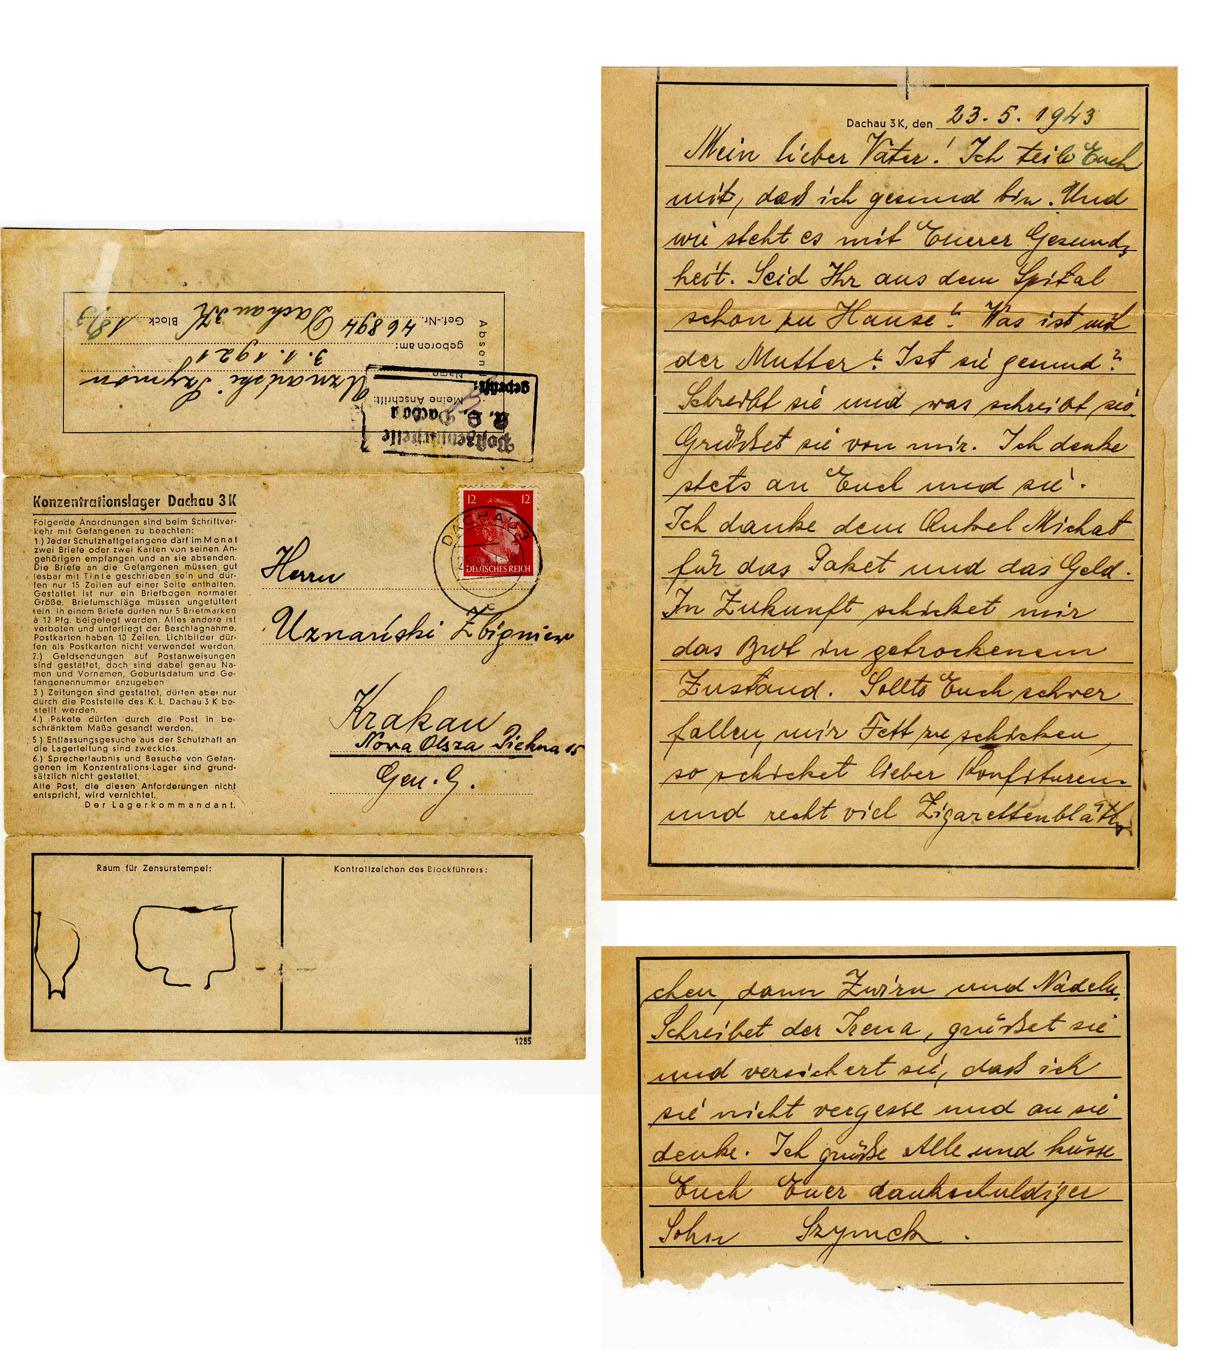 Absen
Meine Anschrift:
Name
Uznański Szymon
geboren am:
3.1.1921
Gef.-Nr. 46894 Dachau 3K Block 18/3
Postzensurstelle
K. L. Dachau
geprüft:
Konzentrationslager Dachau 3 K
Folgende Anordnungen sind beim Schriftver-
kehr mit Gefangenen zu beachten:
1.) Jeder Schutzhaftgefangene darf im Monat
zwei Briefe oder zwei Karten von seinen An-
gehörigen empfangen und an sie absenden.
Die Briefe an die Gefangenen müssen gut
lesbar mit Tinte geschrieben sein und dür-
fen nur 15 Zeilen auf einer Seite enthalten.
Gestattet ist nur ein Briefbogen normaler
Größe. Briefumschläge müssen ungefüttert
sein. In einem Briefe dürfen nur 5 Briefmarken
à 12 Pfg. beigelegt werden. Alles andere ist
verboten und unterliegt der Beschlagnahme.
Postkarten haben 10 Zeilen. Lichtbilder dür-
fen als Postkarten nicht verwendet werden.
2.) Geldsendungen auf Postanweisungen
sind gestattet, doch sind dabei genau Na-
men und Vornamen, Geburtsdatum und Ge-
fangenennummer anzugeben
3.) Zeitungen sind gestattet, dürfen aber nur
durch die Poststelle des K. L. Dachau 3 K be-
stellt werden.
4.) Pakete dürfen durch die Post in be-
schränktem Maße gesandt werden.
5.) Entlassungsgesuche aus der Schutzhaft an
die Lagerleitung sind zwecklos.
6.) Sprecherlaubnis und Besuche von Gefan-
genen im Konzentrations-Lager sind grund-
sätzlich nicht gestattet.
Alle Post, die diesen Anforderungen nicht
entspricht, wird vernichtet.
Der Lagerkommandant.
12 12
DEUTSCHES REICH
DACHAU 3
Herrn
Uznański Zbigniew
Krakau
Nowa Olsza Pickna 15
Gen. G.
Raum für Zensurstempel:
Kontrollzeichen des Blockführers:
1285
Dachau 3 K, den 23.5.1943
Mein lieber Vater! Ich teile Euch
mit, daß ich gesund bin. Und
wie steht es mit Euerer Gesund-
heit. Seid Ihr aus dem Spital
schon zu Hause? Was ist mit
der Mutter? Ist sie gesund?
Schreibt sie und was schreibt sie.
Grüßet sie von mir. Ich denke
stets an Euch und sie.
Ich danke dem Onkel Michał
für das Paket und das Geld.
In Zukunft schicket mir
das Brot in getrockenem
Zustand. Sollte Euch schwer
fallen, mir Fett zu schicken,
so schicket lieber Konfituren
und recht viel Zigarettenblätt-
chen, dann Zwirn und Nadeln.
Schreibet der Irena, grüßet sie
und versichert sie, daß ich
sie nicht vergesse und an sie
denke. Ich grüße Alle und küsse
Euch Euer dankschuldiger
Sohn Szymek.